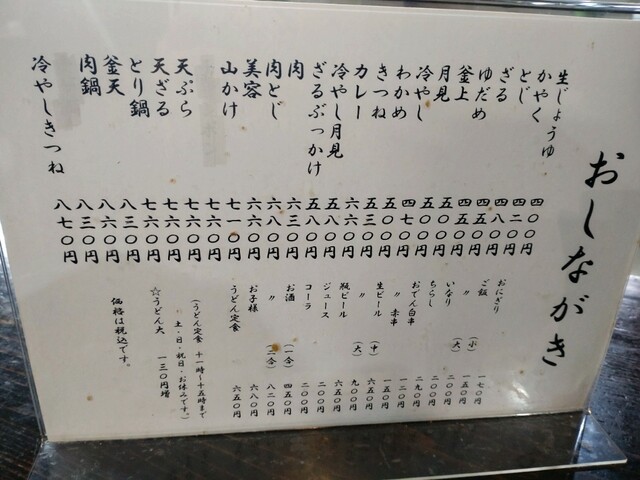 おしながき
生じょうゆ
かやく
とじ
ざる
ゆだめ
釜上
月見
冷やし
わかめ
きつね
カレー
冷やし月見
ざるぶっかけ
肉
肉とじ
美容
山かけ
天ぷら
天ざる
とり鍋
釜天
肉鍋
冷やしきつね
四〇〇円
四二〇円
四八〇円
四五〇円
四五〇円
五〇〇円
五〇〇円
四七〇円
五〇〇円
五三〇円
六六〇円
五八〇円
五八〇円
六三〇円
六八〇円
六六〇円
七一〇円
七六〇円
七六〇円
七六〇円
七六〇円
八三〇円
八六〇円
八三〇円
八七〇円
おにぎり 一七〇円
ご飯 (小) 一五〇円
〃 (大) 二〇〇円
いなり 二〇〇円
ちらし 二九〇円
おでん白串 一二〇円
〃 赤串 一五〇円
生ビール (中) 六五〇円
〃 (大) 九〇〇円
瓶ビール 六五〇円
ジュース 二〇〇円
コーラ 二〇〇円
お酒 (一合) 四五〇円
〃 (二合) 八二〇円
お子様 六八〇円
うどん定食 六五〇円
(うどん定食 十一時〜十五時まで
土・日・祝日・お休みです。)
☆うどん大 一三〇円増
価格は税込です。